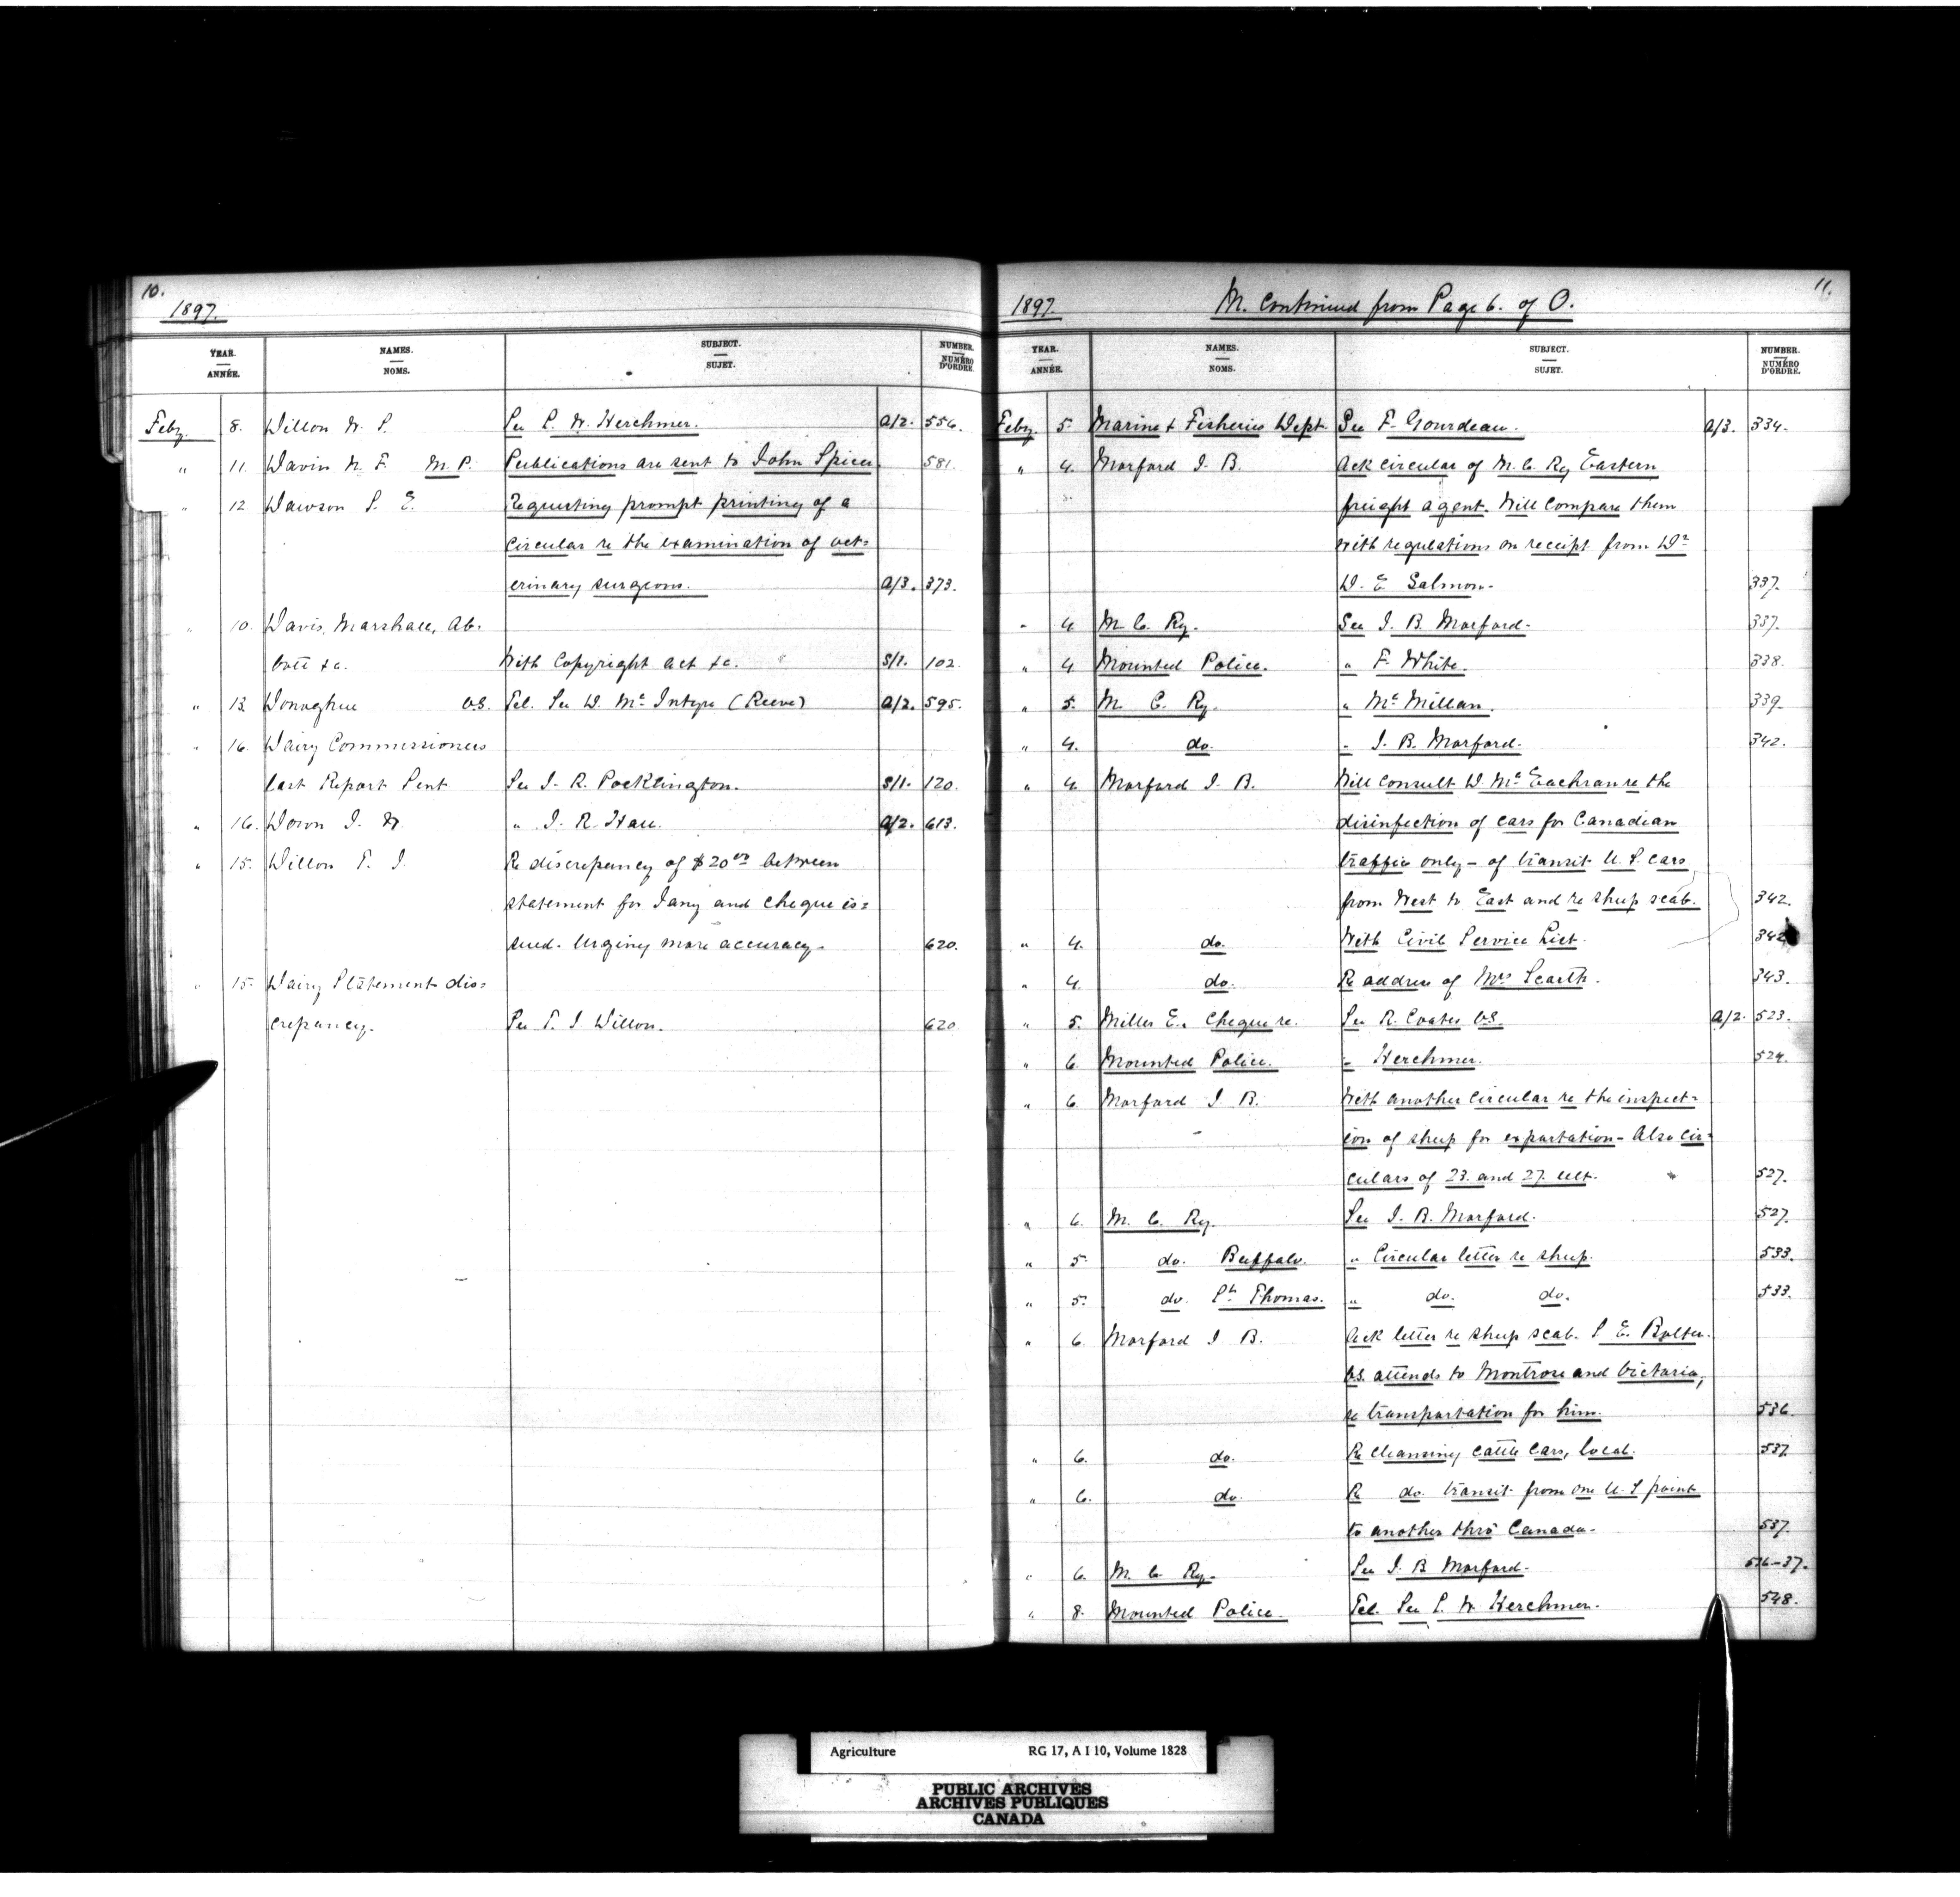 10.
1897.
YEAR. ANNÉE. NAMES. NOMS. SUBJECT. SUJET. NUMBER. NUMÉRO D'ORDRE.
Feby. 8. Dillon W. S. See L. W. Herchmer. A/2. 556.
" 11. Davin N. F. M.P. Publications are sent to John Spicer 581.
" 12. Dawson S. E. Requesting prompt printing of a
circular re the examination of vet=
erinary surgeons. A/3. 373.
" 10. Davis, Marshall, Ab=
bott &c. With Copyright act &c. S/1. 102.
" 13. Donaghue V.S. Tel. See D. Mc Intyre (Reeve) A/2. 595.
" 16. Dairy Commissioners
last Report Sent See J. R. Pocklington. S/1. 120.
" 16. Down J. W. " J. R. Hall. A/2. 613.
" 15. Dillon T. J. Re discrepancy of $20 00 between
statement for Jany and cheque is=
sued. Urging more accuracy. 620.
" 15. Dairy Statement dis=
crepancy. See T. J. Dillon. 620
11.
1897. M. Continued from Page 6. of O.
YEAR. ANNÉE. NAMES. NOMS. SUBJECT. SUJET. NUMBER. NUMÉRO D'ORDRE.
Feby. 5. Marine & Fisheries Dept. See F. Gourdeau. A/3. 334.
" 4. Morford J. B. Ack circular of M. C. Ry Eastern
freight agent. Will compare them
with regulations on receipt from Dr
D. E. Salmon. 337.
" 4. M. C. Ry. See J. B. Morford. 337.
" 4 Mounted Police. " F. White. 338.
" 5. M. C. Ry. " Mc Millan. 339
" 4. do. " J. B. Morford. 342.
" 4. Morford J. B. Will consult D. Mc Eachran re the
disinfection of cars for Canadian
traffic only - of transit U. S. cars
from West to East and re sheep scab. 342.
" 4. do. With Civil Service List. 342
" 4. do. Re address of Mrs Scarth. 343.
" 5. Miller E. Cheque re. See R. Coates V.S. A/2. 523.
" 6. Mounted Police. " Herchmer. 524.
" 6. Morford J. B. With another circular re the inspect=
ion of sheep for exportation - Also cir=
culars of 23. and 27. ult. 527.
" 6. M. C. Ry. See J. B. Morford. 527.
" 5. do. Buffalo. " Circular letter re sheep. 533.
" 5. do. St. Thomas. " do. do. 533.
" 6. Morford J. B. Ack letter re sheep scab. S. E. Boulter
V.S. attends to Montrose and Victoria,
re transportation for him. 536.
" 6. do. Re cleansing cattle cars, local. 537
" 6. do. Re do. transit from one U. S. point
to another thro' Canada. 537
" 6. M. C. Ry. See J. B. Morford. 536-37.
" 8. Mounted Police. Tel. See L. W. Herchmer. 548.
Agriculture RG 17, A I 10, Volume 1828
PUBLIC ARCHIVES
ARCHIVES PUBLIQUES
CANADA